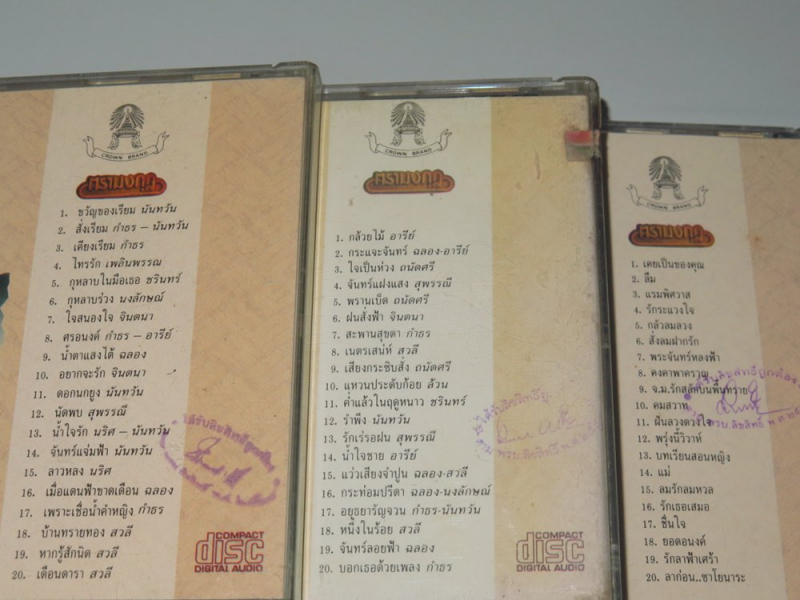 CROWN BRAND
ตรามงกุฎ
1. ขวัญของเรียม นันทวัน
2. สั่งเรียม กำธร – นันทวัน
3. เคียงเรียม กำธร
4. ไทรรัก เพลินพรรณ
5. กุหลาบในมือเธอ ชรินทร์
6. กุหลาบร่วง นงลักษณ์
7. ใจสนองใจ จินตนา
8. ศรอนงค์ กำธร – อารีย์
9. น้ำตาแสงไต้ ฉลอง
10. อยากจะรัก จินตนา
11. ดอกนกยูง นันทวัน
12. นัดพบ สุพรรณี
13. น้ำใจรัก นริศ – นันทวัน
14. จันทร์แจ่มฟ้า นันทวัน
15. ลาวหลง นริศ
16. เมื่อแดนฟ้าขาดเดือน ฉลอง
17. เพราะเชื่อน้ำคำหญิง กำธร
18. บ้านทรายทอง สวลี
19. หากรู้สักนิด สวลี
20. เดือนดารา สวลี
COMPACT
disc
DIGITAL AUDIO
CROWN BRAND
ตรามงกุฎ
1. กล้วยไม้ อารีย์
2. กระแจะจันทร์ ฉลอง-อารีย์
3. ใจเป็นห่วง ถนัดศรี
4. จันทร์แฝงแสง สุพรรณี
5. พรานเบ็ด ถนัดศรี
6. ฝนสั่งฟ้า จินตนา
7. สะพานสุขตา กำธร
8. เนตรเสน่ห์ สวลี
9. เสียงกระซิบสั่ง ถนัดศรี
10. แหวนประดับก้อย ล้วน
11. ค่ำแล้วในฤดูหนาว ชรินทร์
12. รำพึง นันทวัน
13. รักเร่รอฝน สุพรรณี
14. น้ำใจชาย อารีย์
15. แว่วเสียงจำปูน ฉลอง-สวลี
16. กระท่อมปรีดา ฉลอง-นงลักษณ์
17. อยุธยารัญจวน กำธร-นันทวัน
18. หนึ่งในร้อย สวลี
19. จันทร์ลอยฟ้า ฉลอง
20. บอกเธอด้วยเพลง กำธร
COMPACT
disc
DIGITAL AUDIO
CROWN BRAND
ตรามงกุฎ
1. เคยเป็นของคุณ
2. ลืม
3. แรมพิศวาส
4. รักระแวงใจ
5. กล้วลมลวง
6. สั่งลมฝากรัก
7. พระจันทร์หลงฟ้า
8. คงคาพาคราญ
9. จ.ม.รักสลักบนพื้นทราย
10. คมสวาท
11. ฝันลวงดวงใจ
12. พรุ่งนี้วิวาห์
13. บทเรียนสอนหญิง
14. แม่
15. ลมรักลมหวล
16. รักเธอเสมอ
17. ชื่นใจ
18. ยอดอนงค์
19. รักลาฟ้าเศร้า
20. ลาก่อน..ซาโยนาระ